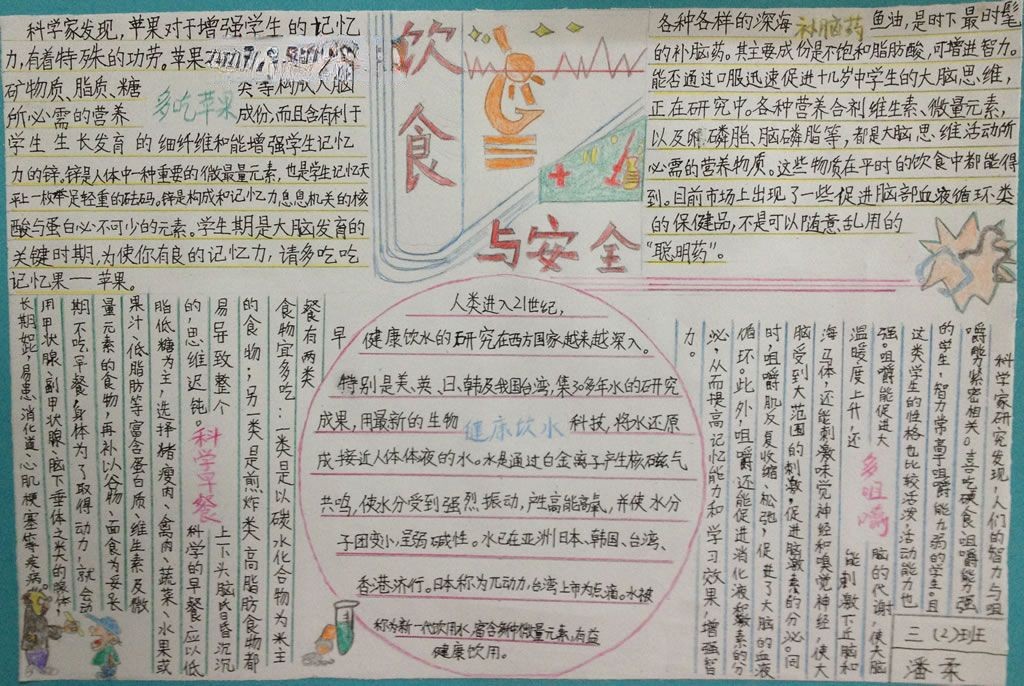 饮食
与安全
科学家发现,苹果对于增强学生的记忆
力,有着特殊的功劳。苹果
矿物质、脂质、糖 类等构成大脑
多吃苹果
所必需的营养 成份,而且含有利于
学生生长发育的细纤维和能增强学生记忆
力的锌。锌是人体中一种重要的微量元素,也是学生记忆天
平上一枚举足轻重的砝码。锌是构成和记忆力息息机关的核
酸与蛋白必不可少的元素。学生期是大脑发育的
关键时期,为使你有良的记忆力,请多吃吃
记忆果——苹果。
各种各样的深海 鱼油,是时下最时髦
补脑药
的补脑药。其主要成份是不饱和脂肪酸,可增进智力。
能否通过口服迅速促进十几岁中学生的大脑思维,
正在研究中。各种营养合剂维生素、微量元素,
以及卵磷脂、脑磷脂等,都是大脑思维活动所
必需的营养物质。这些物质在平时的饮食中都能得
到。目前市场上出现了一些促进脑部血液循环类
的保健品,不是可以随意乱用的
“聪明药”。
早
餐有两类
食物宜多吃:一类是以碳水化合物为米主
的食物;另一类是煎炸类、高脂肪食物都
易导致整个 上下头脑氏昏沉沉
的,思维迟钝。 科学的早餐应以低
科学早餐
脂低糖为主,选择猪瘦肉、禽肉、蔬菜、水果或
果汁、低脂肪等等富含蛋白质、维生素及微
量元素的食物,再补以谷物、面食为妥。长
期不吃早餐,身体为了取得动力,就会动
用甲状腺、副甲状腺、脑下垂体之类的腺体,
长期如此,易患消化道、心肌梗塞等疾病。
人类进入21世纪,
健康饮水的研究在西方国家越来越深入。
特别是美、英、日、韩及我国台湾,集30多年水的研究
成果,用最新的生物 科技,将水还原
健康饮水
成接近人体体液的水。水是通过白金离子产生核磁气
共鸣,使水分受到强烈振动,产生高能高氧,并使水分
子团变小,呈弱碱性。水已在亚洲日本、韩国、台湾、
香港流行。日本称为元动力,台湾上市为点滴。水被
称为新一代饮用水,富含钠中微量元素,有益
健康饮用。
科学家研究发现,人们的智力与咀
嚼能力紧密相关。喜吃硬食、咀嚼能力强
的学生,智力常高于咀嚼能力弱的学生。且
这类学生的性格也比较活泼,活动能力也
强。咀嚼能促进大 脑的代谢,使大脑
多咀嚼
温暖度上升,还 能刺激下近脑和
海马体,还能刺激味觉神经和嗅觉神经,使大
脑受到大范围的刺激,促进脑激素的分泌。同
时,咀嚼肌反复收缩、松弛,促进了大脑的血液
循环。此外,咀嚼还能促进消化液和激素的分
泌,从而提高记忆能力和学习效果,增强智
力。
三(2)班
潘柔